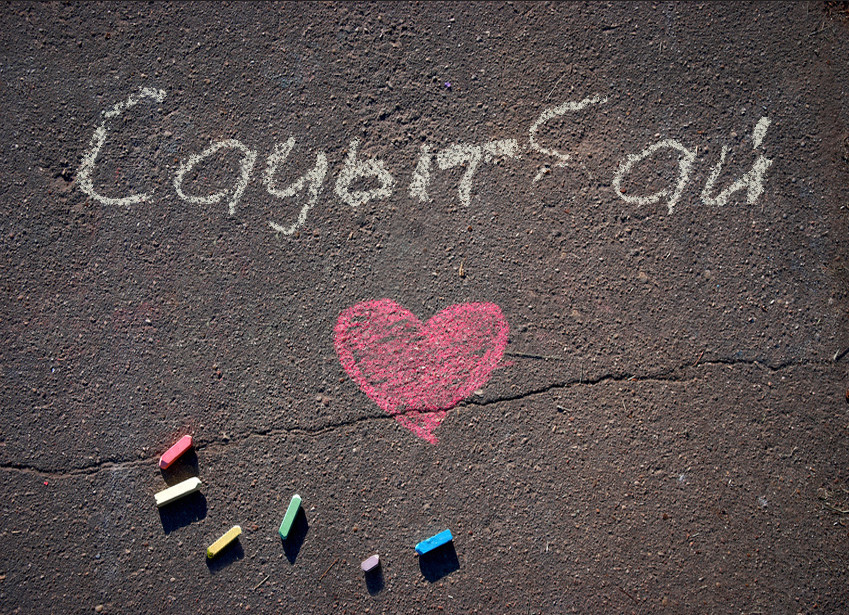 Сауытбай